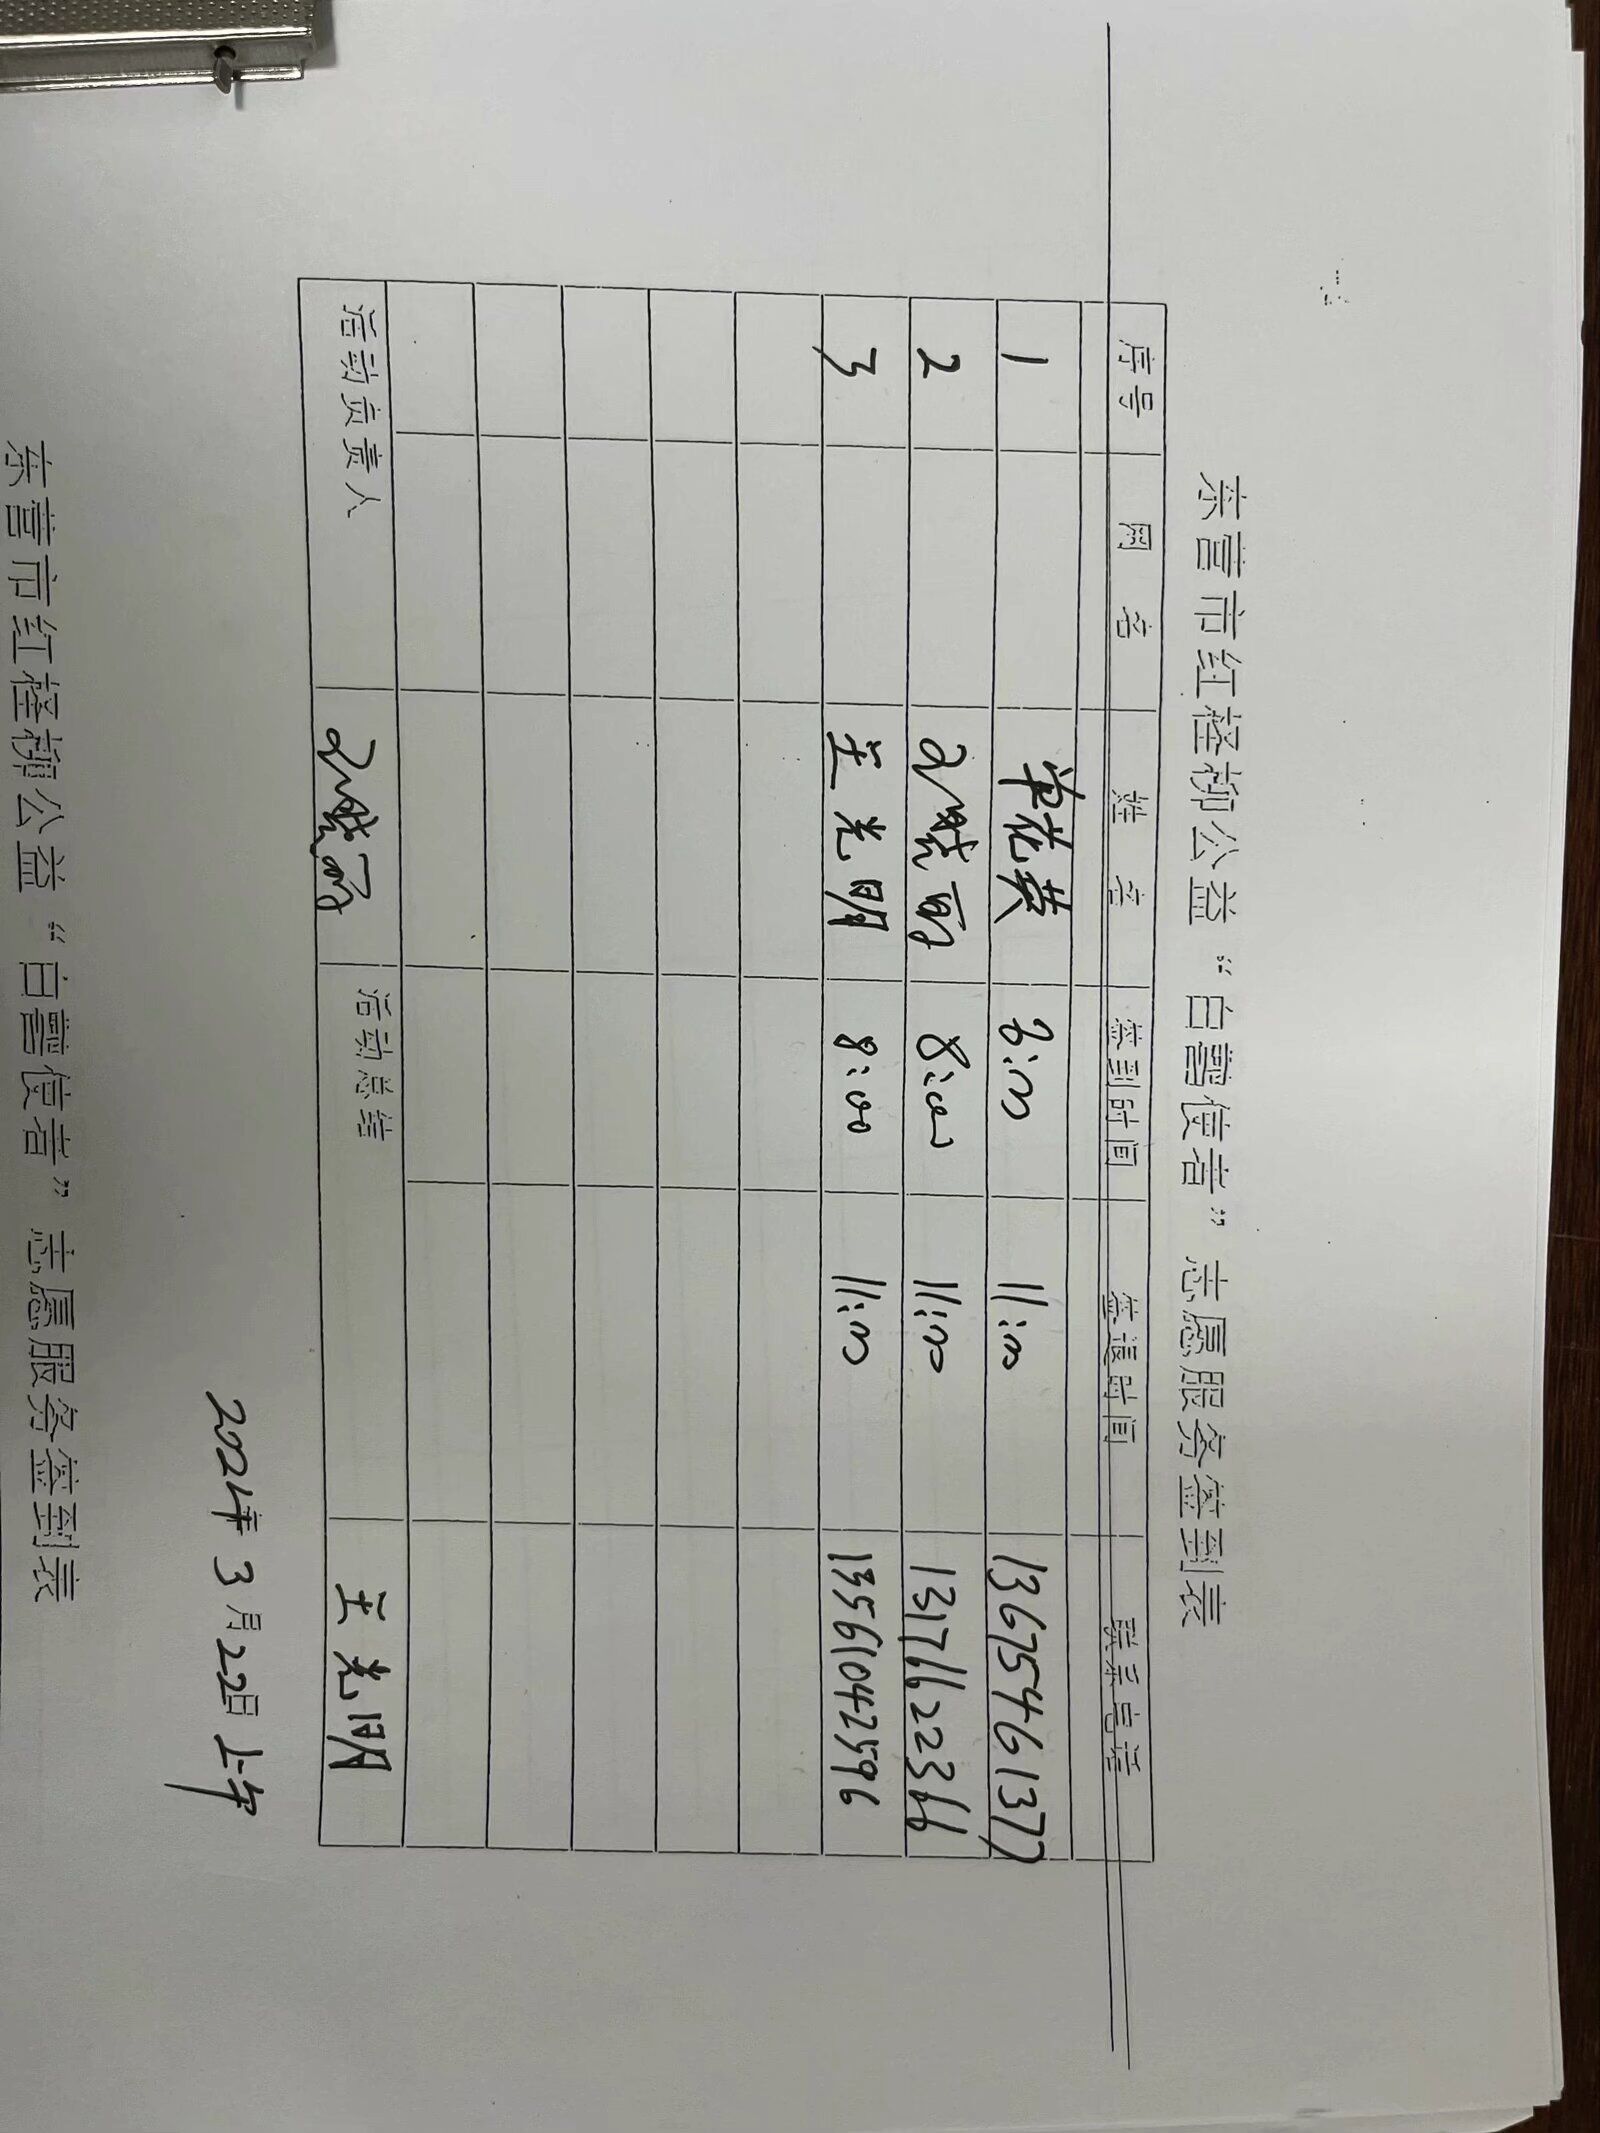 东营市红柽柳公益“白鹭使者”志愿服务签到表
序号 网名 姓名 签到时间 签退时间 联系电话
1 8:00 11:00 13675461377
2 8:00 11:00 13176622366
3 王光明 8:00 11:00 13561042596
活动负责人 活动总结 王光明
2024年3月22日上午
东营市红柽柳公益“白鹭使者”志愿服务签到表